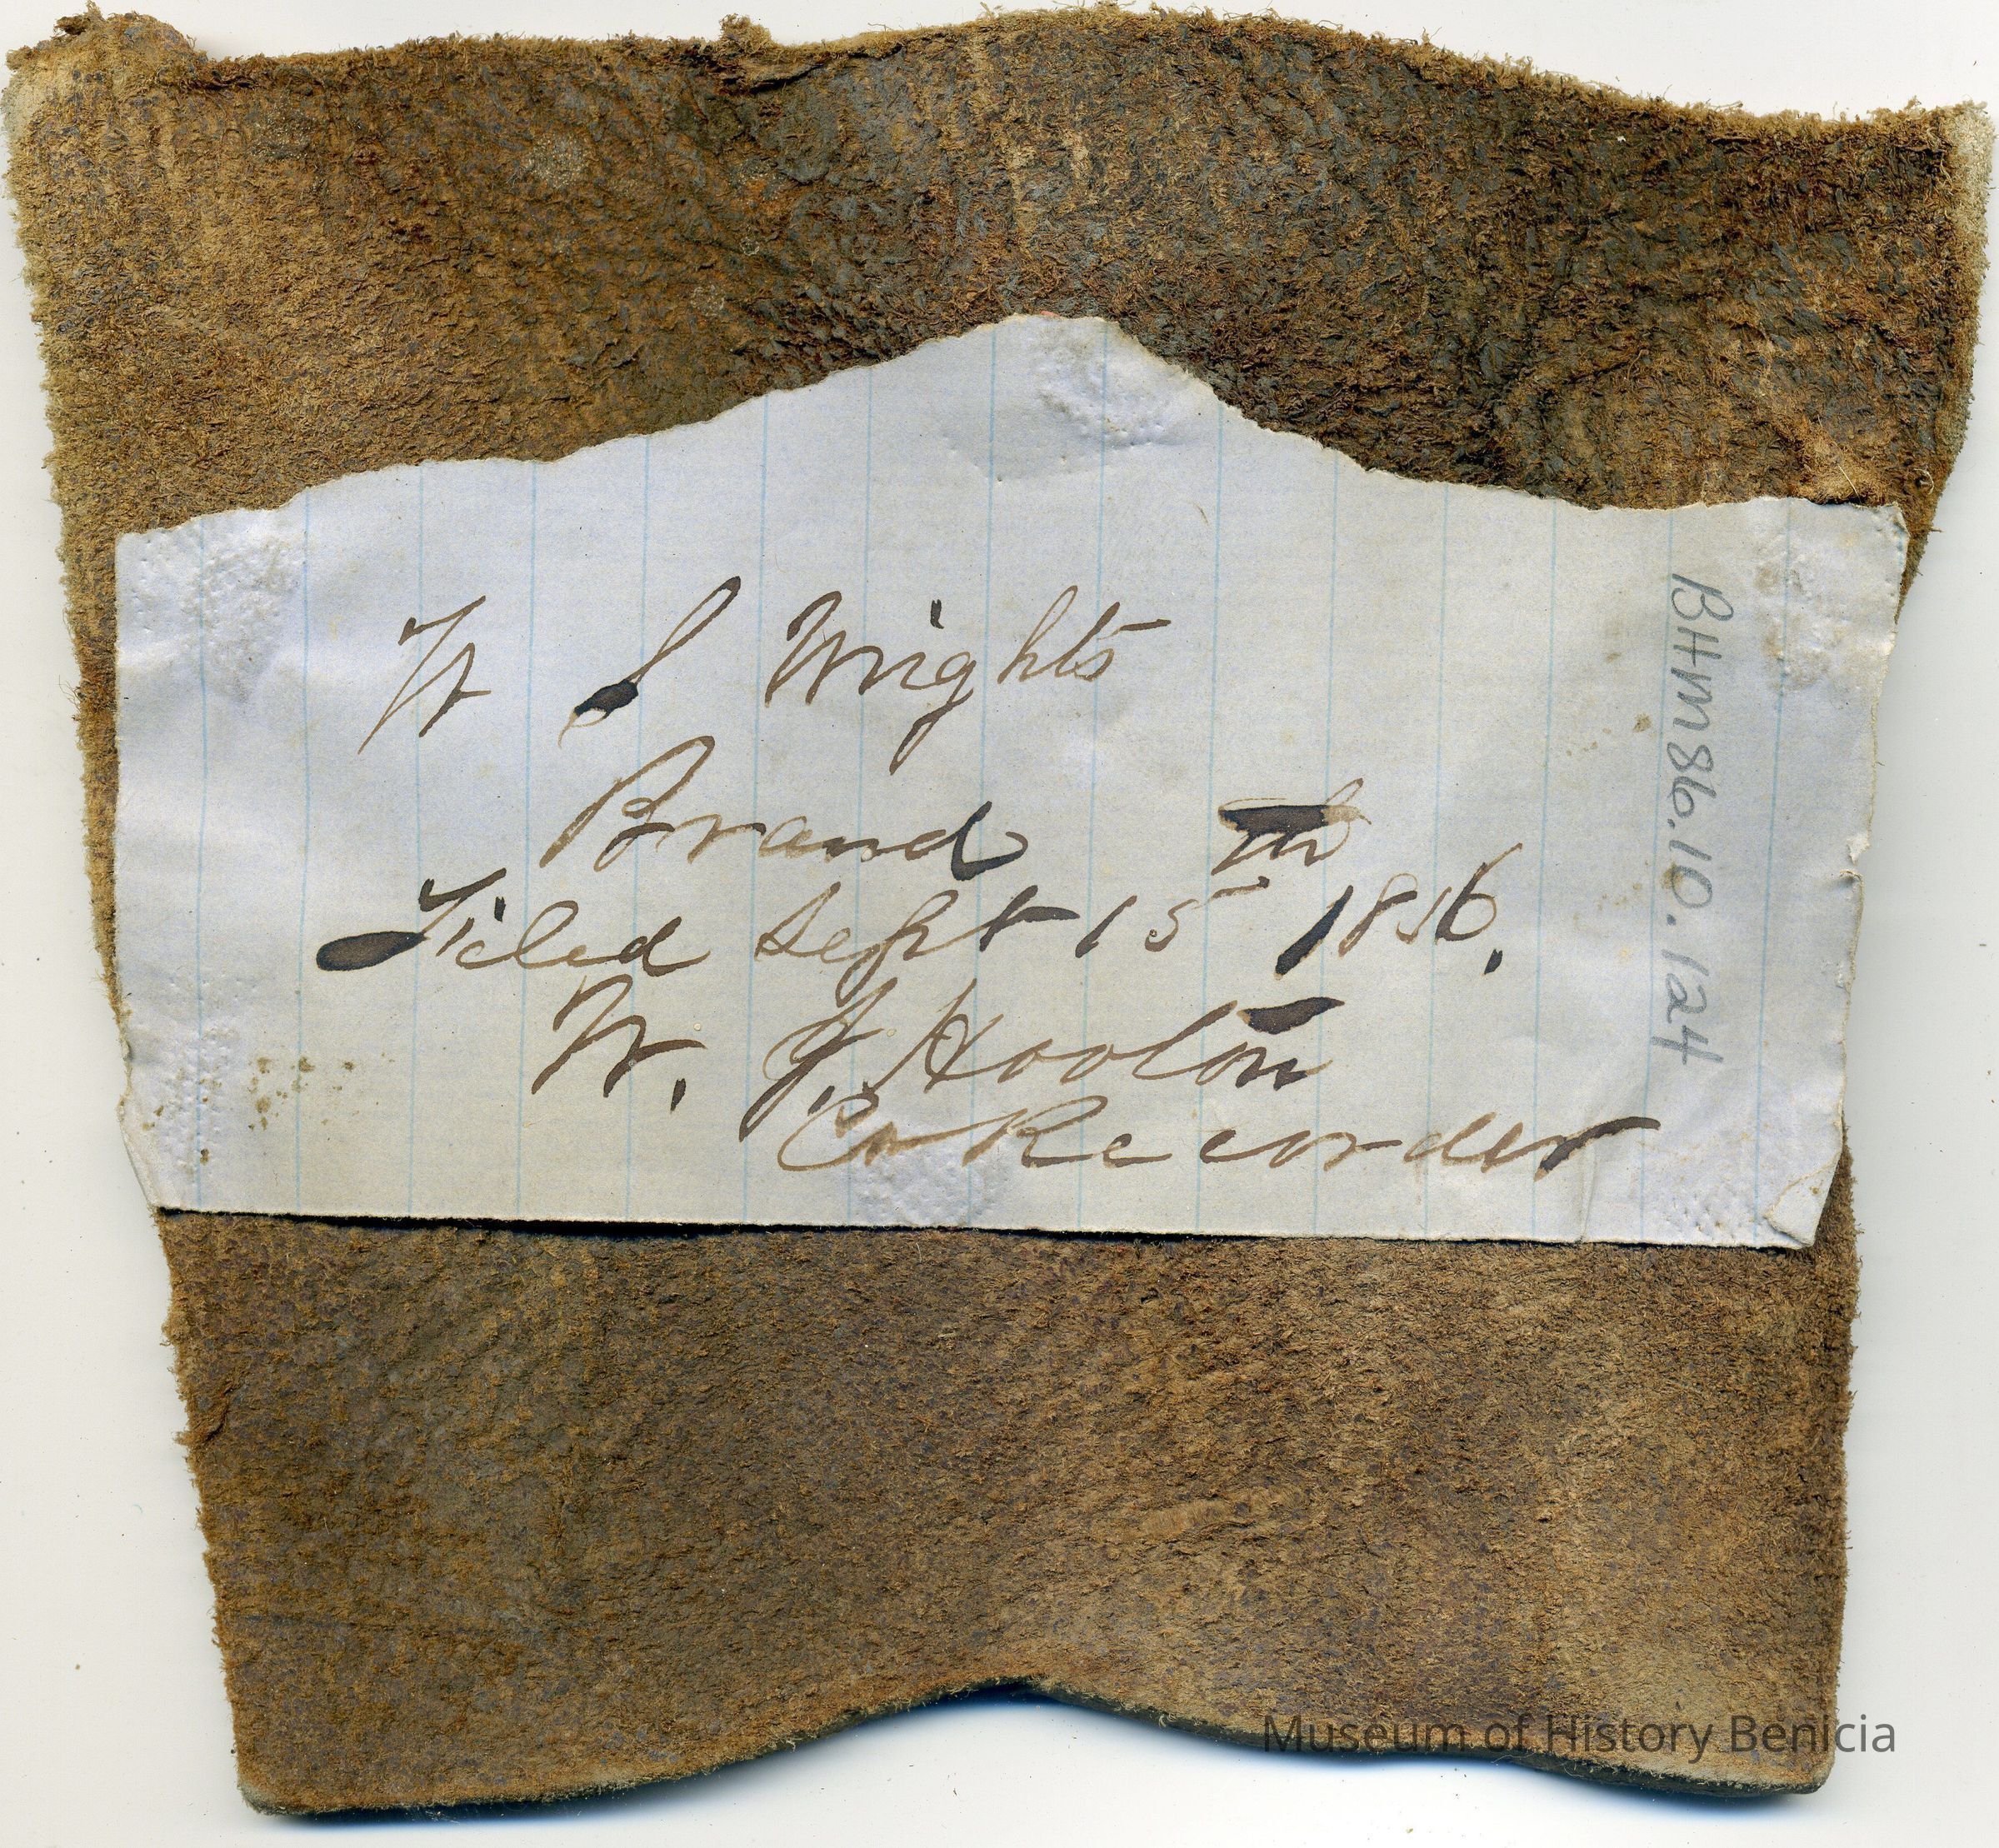 W S Wrights
Brand
Filed Sept 15th 1856.
W. J. Hooton
Co Recorder
BHM 86.10.124
Museum of History Benicia